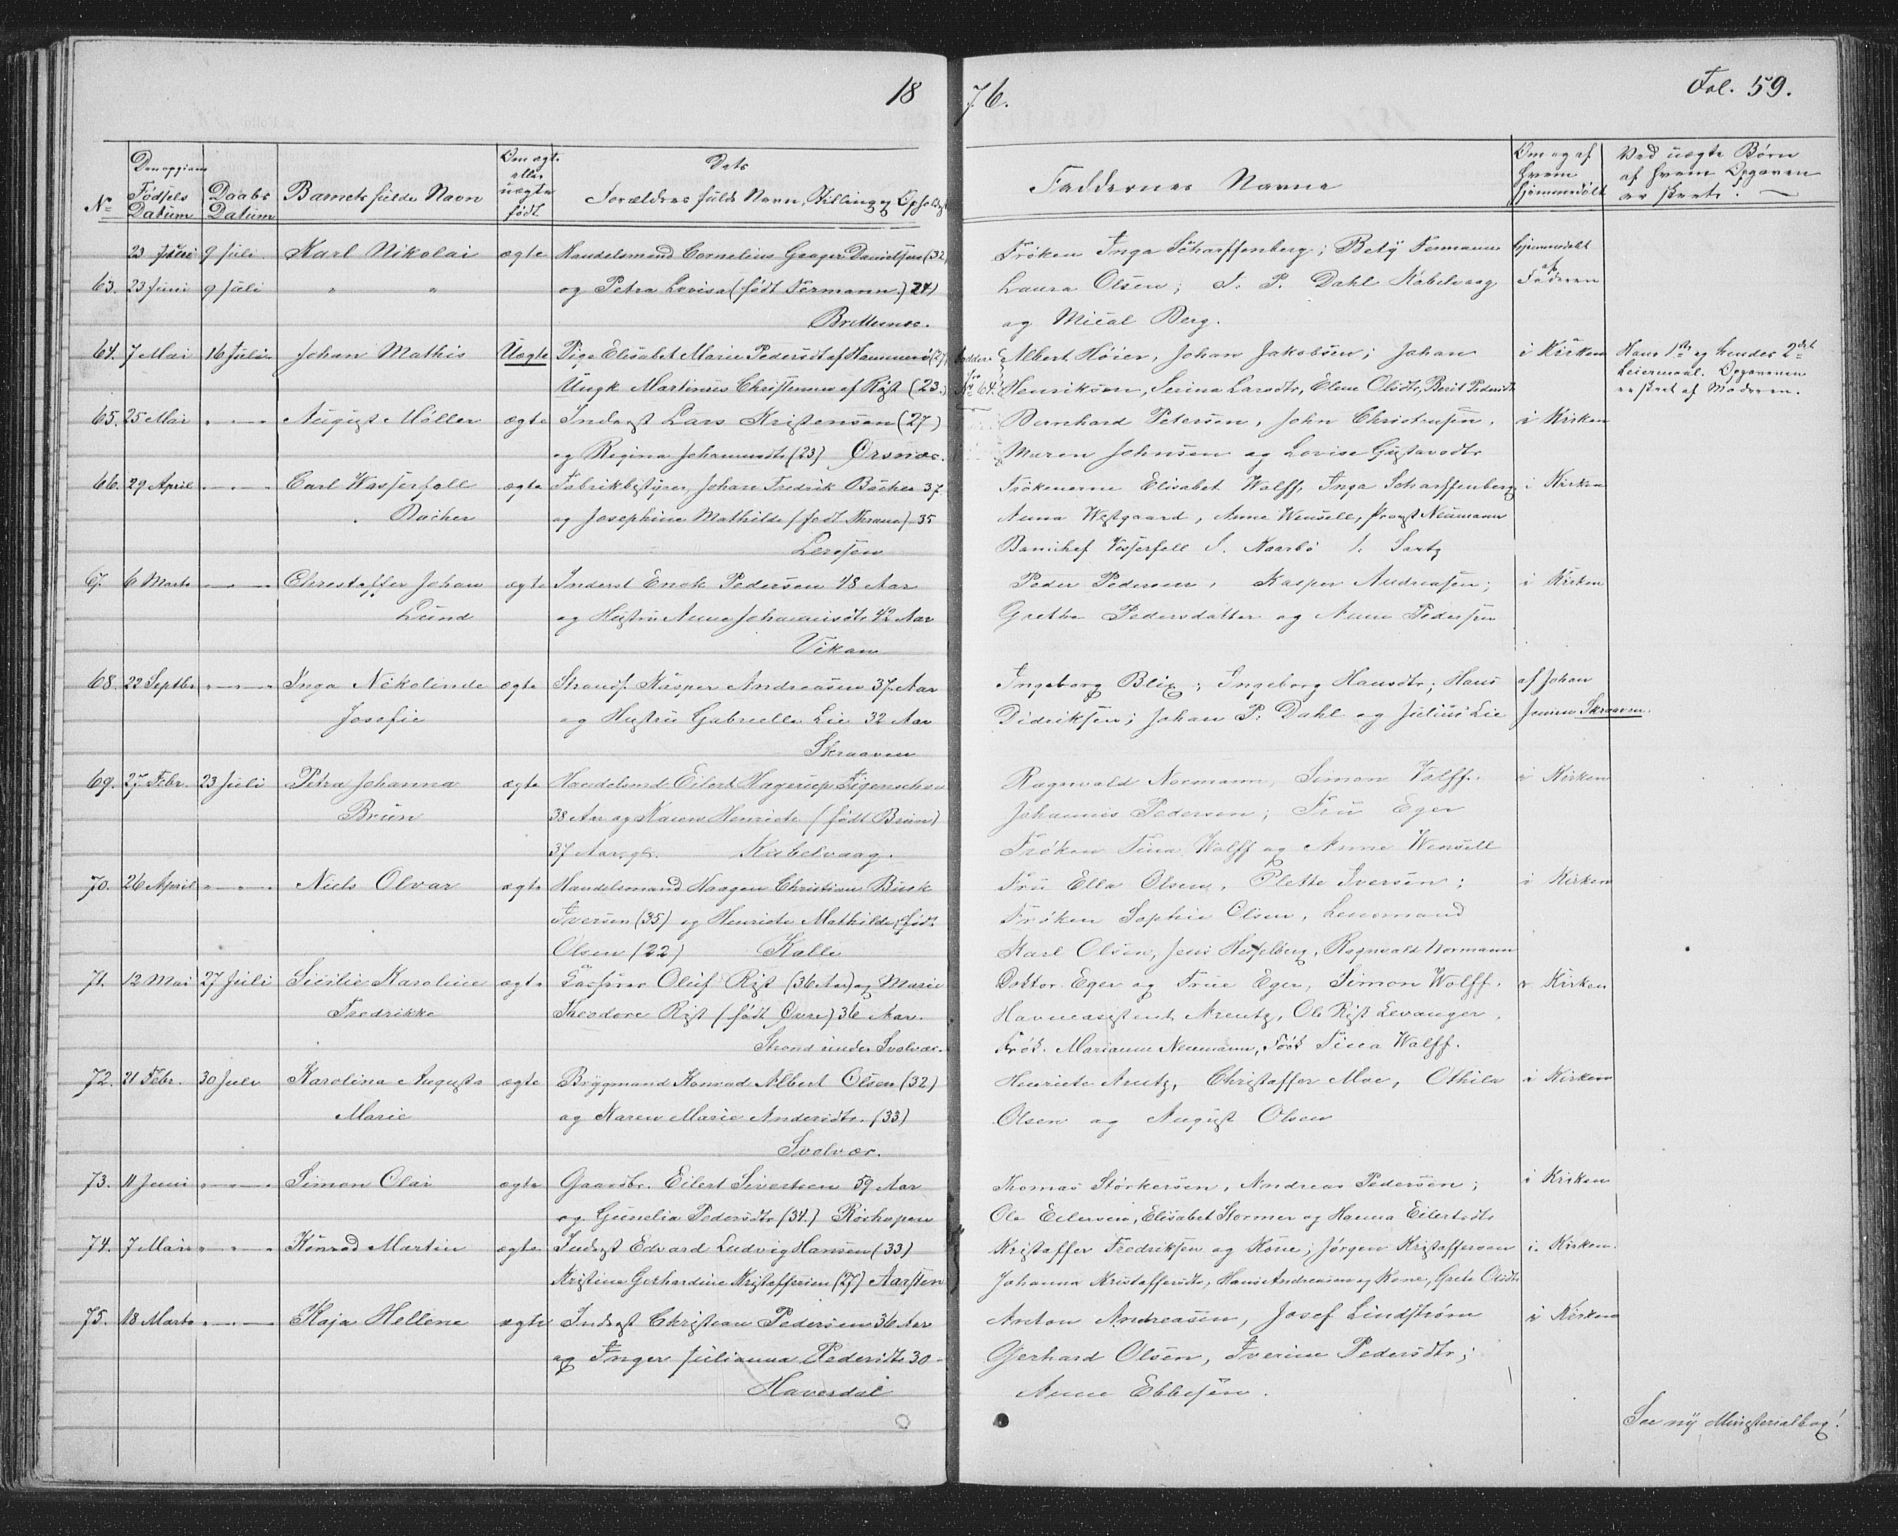 1876.
Fol. 59.
No
Den opgivne Fødsels Datum
Daabs Datum
Barnets fulde Navn
Om ægte eller uægte født
Dets Forældres fulde Navn, Stilling og Ophold
Faddernes Navne
Om og af hvem hjemmedøbt
Ved uægte Børn af hvem Opgaven er skeet?
23 Juni 9 Juli Karl Nikolai ægte Handelsmand Cornelius Davidsen (32) Frøken Inga Scharffenberg; Hjemmedøbt
63. 23 Juni 9 Juli " " og Petra Lovisa (født Fermann) 24) Laura Olsen; J. P. Dahl Kabelvaag af Faderen
Brettesnæs. og Mical Berg.
64. 7 Mai 16 Juli Johan Mathis Uægte Pige Elisabet Marie Pedersdt af Hammerø (27) Albert Høier, Johan Jakobsen; Johan i Kirken Hans 1ste og hendes 2det
Ungk Martinus Christensen af Røst (23.) Fadder No 64. Henriksen, Serina Larsdtr, Elene Olsdtr, Berit Pedersdtr Leiermaal. Opgaven er skeet af Moderen.
65. 25 Mai " August Møller ægte Inderst Lars Kristensen (27) Bernhard Petersen, John Christensen, i Kirken
og Regina Johannesdtr (23) Ørsnæs. Maren Johnsen og Lovise Gustavsdtr
66. 29 April " Carl Wasserfall ægte Fabrikbestyrer Johan Fredrik Bücher 37 Frøknerne Elisabet Wolff, Inga Scharffenberg i Kirken
Bücher og Josephine Mathilde (født) 35 Anna Westgaard, Anne Wensell, Provst Neumann
Wasserfall
67. 6 Marts " Christoffer Johan ægte Inderst Enok Pedersen 48 Aar Peder Pedersen, Kasper Andreasen; i Kirken
Lund og Hustru Anna Johannisdtr 42 Aar Grethe Pedersdatter og Anne Pedersen
Vikan
68. 22 Septbr " Inga Nikolinde ægte Strands. Kasper Andreasen 37 Aar Ingeborg Blix; Ingeborg Hansdtr; Hans af Johan
Josefie og Hustru Gabrielle Lie 32 Aar Didriksen; Johan P. Dahl og Julius Lie Jensen Skraaven.
Skraaven
69. 27 Febr. 23 Juli Petra Johanna ægte Handelsmd Eilert Hagerup Figenschou Ragnvald Normann, Simon Wolff. i Kirken
Brun 38 Aar og Karen Henriete (født Brun) Johannes Pedersen; Fru Eger
37 Aar gl. Kabelvaag. Frøken Tina Wolff og Anne Wensell
70. 26 April " Niels Olvar ægte Handelsmand Haagen Christian Busk Fru Ella Olsen, Plette Iversen; i Kirken
Iversen (35) og Henriete Mathilde (født Frøken Sophie Olsen, Lensmand
Olsen (22) Kalle Karl Olsen, Jens Hesselberg, Ragnvald Normann
71. 12 Mai 27 Juli Sicilie Karoline ægte Olüf Rist (36 Aar) og Marie Doktor Eger og Frue Eger, Simon Wolff. i Kirken
Fredrikke Theodore Rist (født Øvre) 36 Aar. Havneasistent Arentz, Ole Rist Levanger,
Strand under Svolvær. Frøk. Marianne Neumann, Frøk Tina Wolff.
72. 21 Febr. 30 Juli Karolina Augusta ægte Brygmand Konrad Albert Olsen (32) Henriete Arntz, Christoffer Moe, Othila i Kirken
Marie og Karen Marie Andersdtr. (33) Olsen og August Olsen
Svolvær.
73. 11 Juni " Simon Olai ægte Gaardbr. Eilert Sivertsen 59 Aar Thomas Størkersen, Andreas Pedersen; i Kirken
og Gunelia Pedersdtr (34.) Røshopen Ole Eilersen, Elisabet Stormer og Hanna Eilertsdtr
74. 7 Mai " Konrad Martin ægte Inderst Edvard Ludvig Hansen (33) Kristoffer Fredriksen og Kone; Jørgen Kristoffersen i Kirken.
Kristine Gerhardine Kristoffersen (27) Aarsten Johanna Kristoffersdtr, Hans Andreasen og Kone, Grete Olsdtr
75. 18 Marts " Kaja Hellene ægte Inderst Christian Pedersen 36 Aar Anton Andreasen, Josef Lindstrøm i Kirken
og Inger Julianna Pedersdtr 30 Gerhard Olsen, Iverine Pedersdtr;
Haversdal Anne Ebbesen.
See ny Ministerialbog!